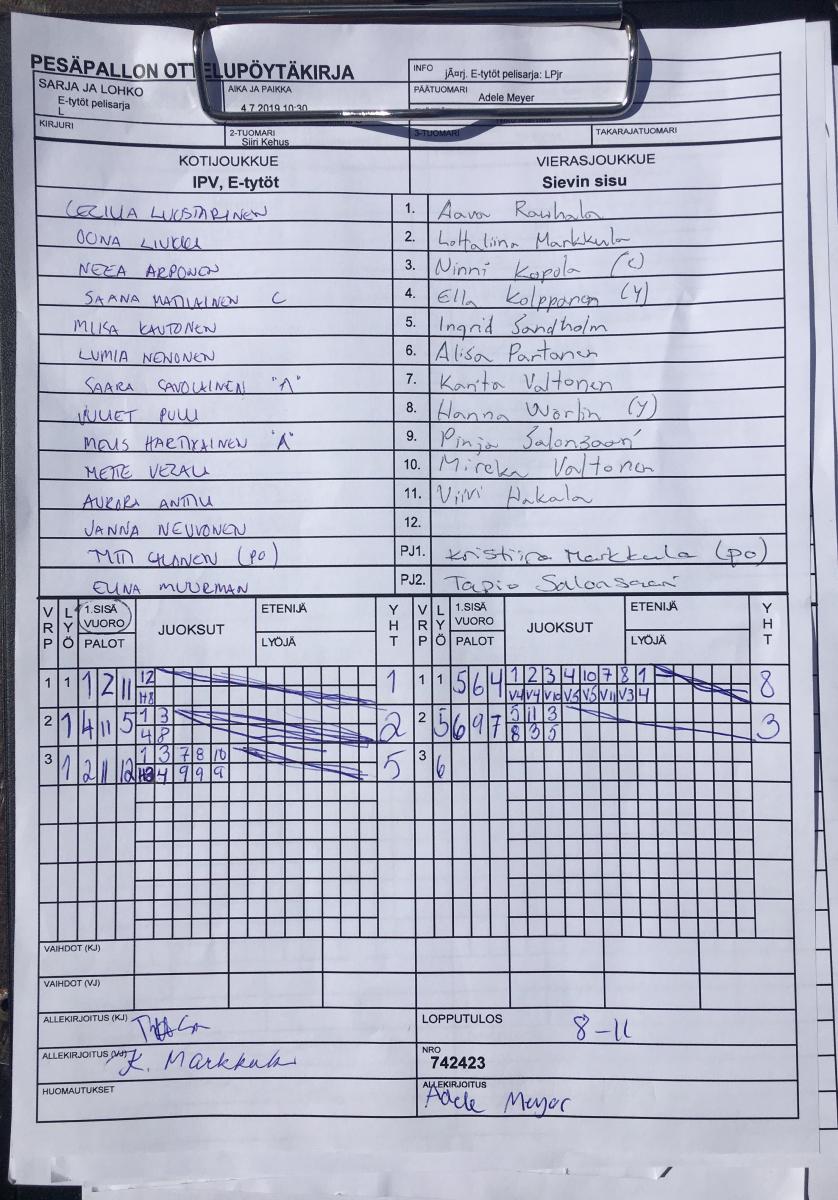 PESÄPALLON OTTELUPÖYTÄKIRJA
INFO jÃ¤rj. E-tytöt pelisarja: LPjr
SARJA JA LOHKO
E-tytöt pelisarja
L
AIKA JA PAIKKA
4.7.2019 10:30
PÄÄTUOMARI
Adele Meyer
KIRJURI
2-TUOMARI
Siiri Kehus
3-TUOMARI
TAKARAJATUOMARI
KOTIJOUKKUE
IPV, E-tytöt
VIERASJOUKKUE
Sievin sisu
CECILIA LUOSTARINEN 1. Aava Rauhala
OONA 2. Lottaliina Markkula
NEEA ARPONEN 3. Ninni Kopola (C)
SAANA MATILAINEN C 4. Ella Kolppanen (Y)
KAUTONEN 5. Ingrid Sandholm
LUMIA NENONEN 6. Alisa Partanen
SAARA SAVOLAINEN "A" 7. Karita Valtonen
PULLI 8. Hanna Wörlin (Y)
HARTIKAINEN "A" 9. Pinja Salonsaari
METTE 10. Mireka Valtonen
AURORA ANTTILI 11. Viivi Hakala
JANNA NEUVONEN 12.
(PO) PJ1. Kristiina Markkula (po)
ELINA MUURMAN PJ2. Tapio Salonsaari
VRP LYÖ 1.SISÄ VUORO PALOT JUOKSUT ETENIJÄ LYÖJÄ YHT VRP LYÖ 1.SISÄ VUORO PALOT JUOKSUT ETENIJÄ LYÖJÄ YHT
1 1 1 2 11 12 1 1 1 5 6 4 1 2 3 4 10 7 8 1 8
H8 V4 V4 V10 V5 V5 V11 V3 4
2 1 4 11 5 1 3 2 2 5 6 9 7 5 11 3 3
4 8 8 3 5
3 1 2 11 12 1 3 7 8 10 5 3 6
4 9 9 9
VAIHDOT (KJ)
VAIHDOT (VJ)
ALLEKIRJOITUS (KJ)
LOPPUTULOS 8-11
ALLEKIRJOITUS (VJ) K. Markkula
NRO
742423
HUOMAUTUKSET
ALLEKIRJOITUS
Adele Meyer